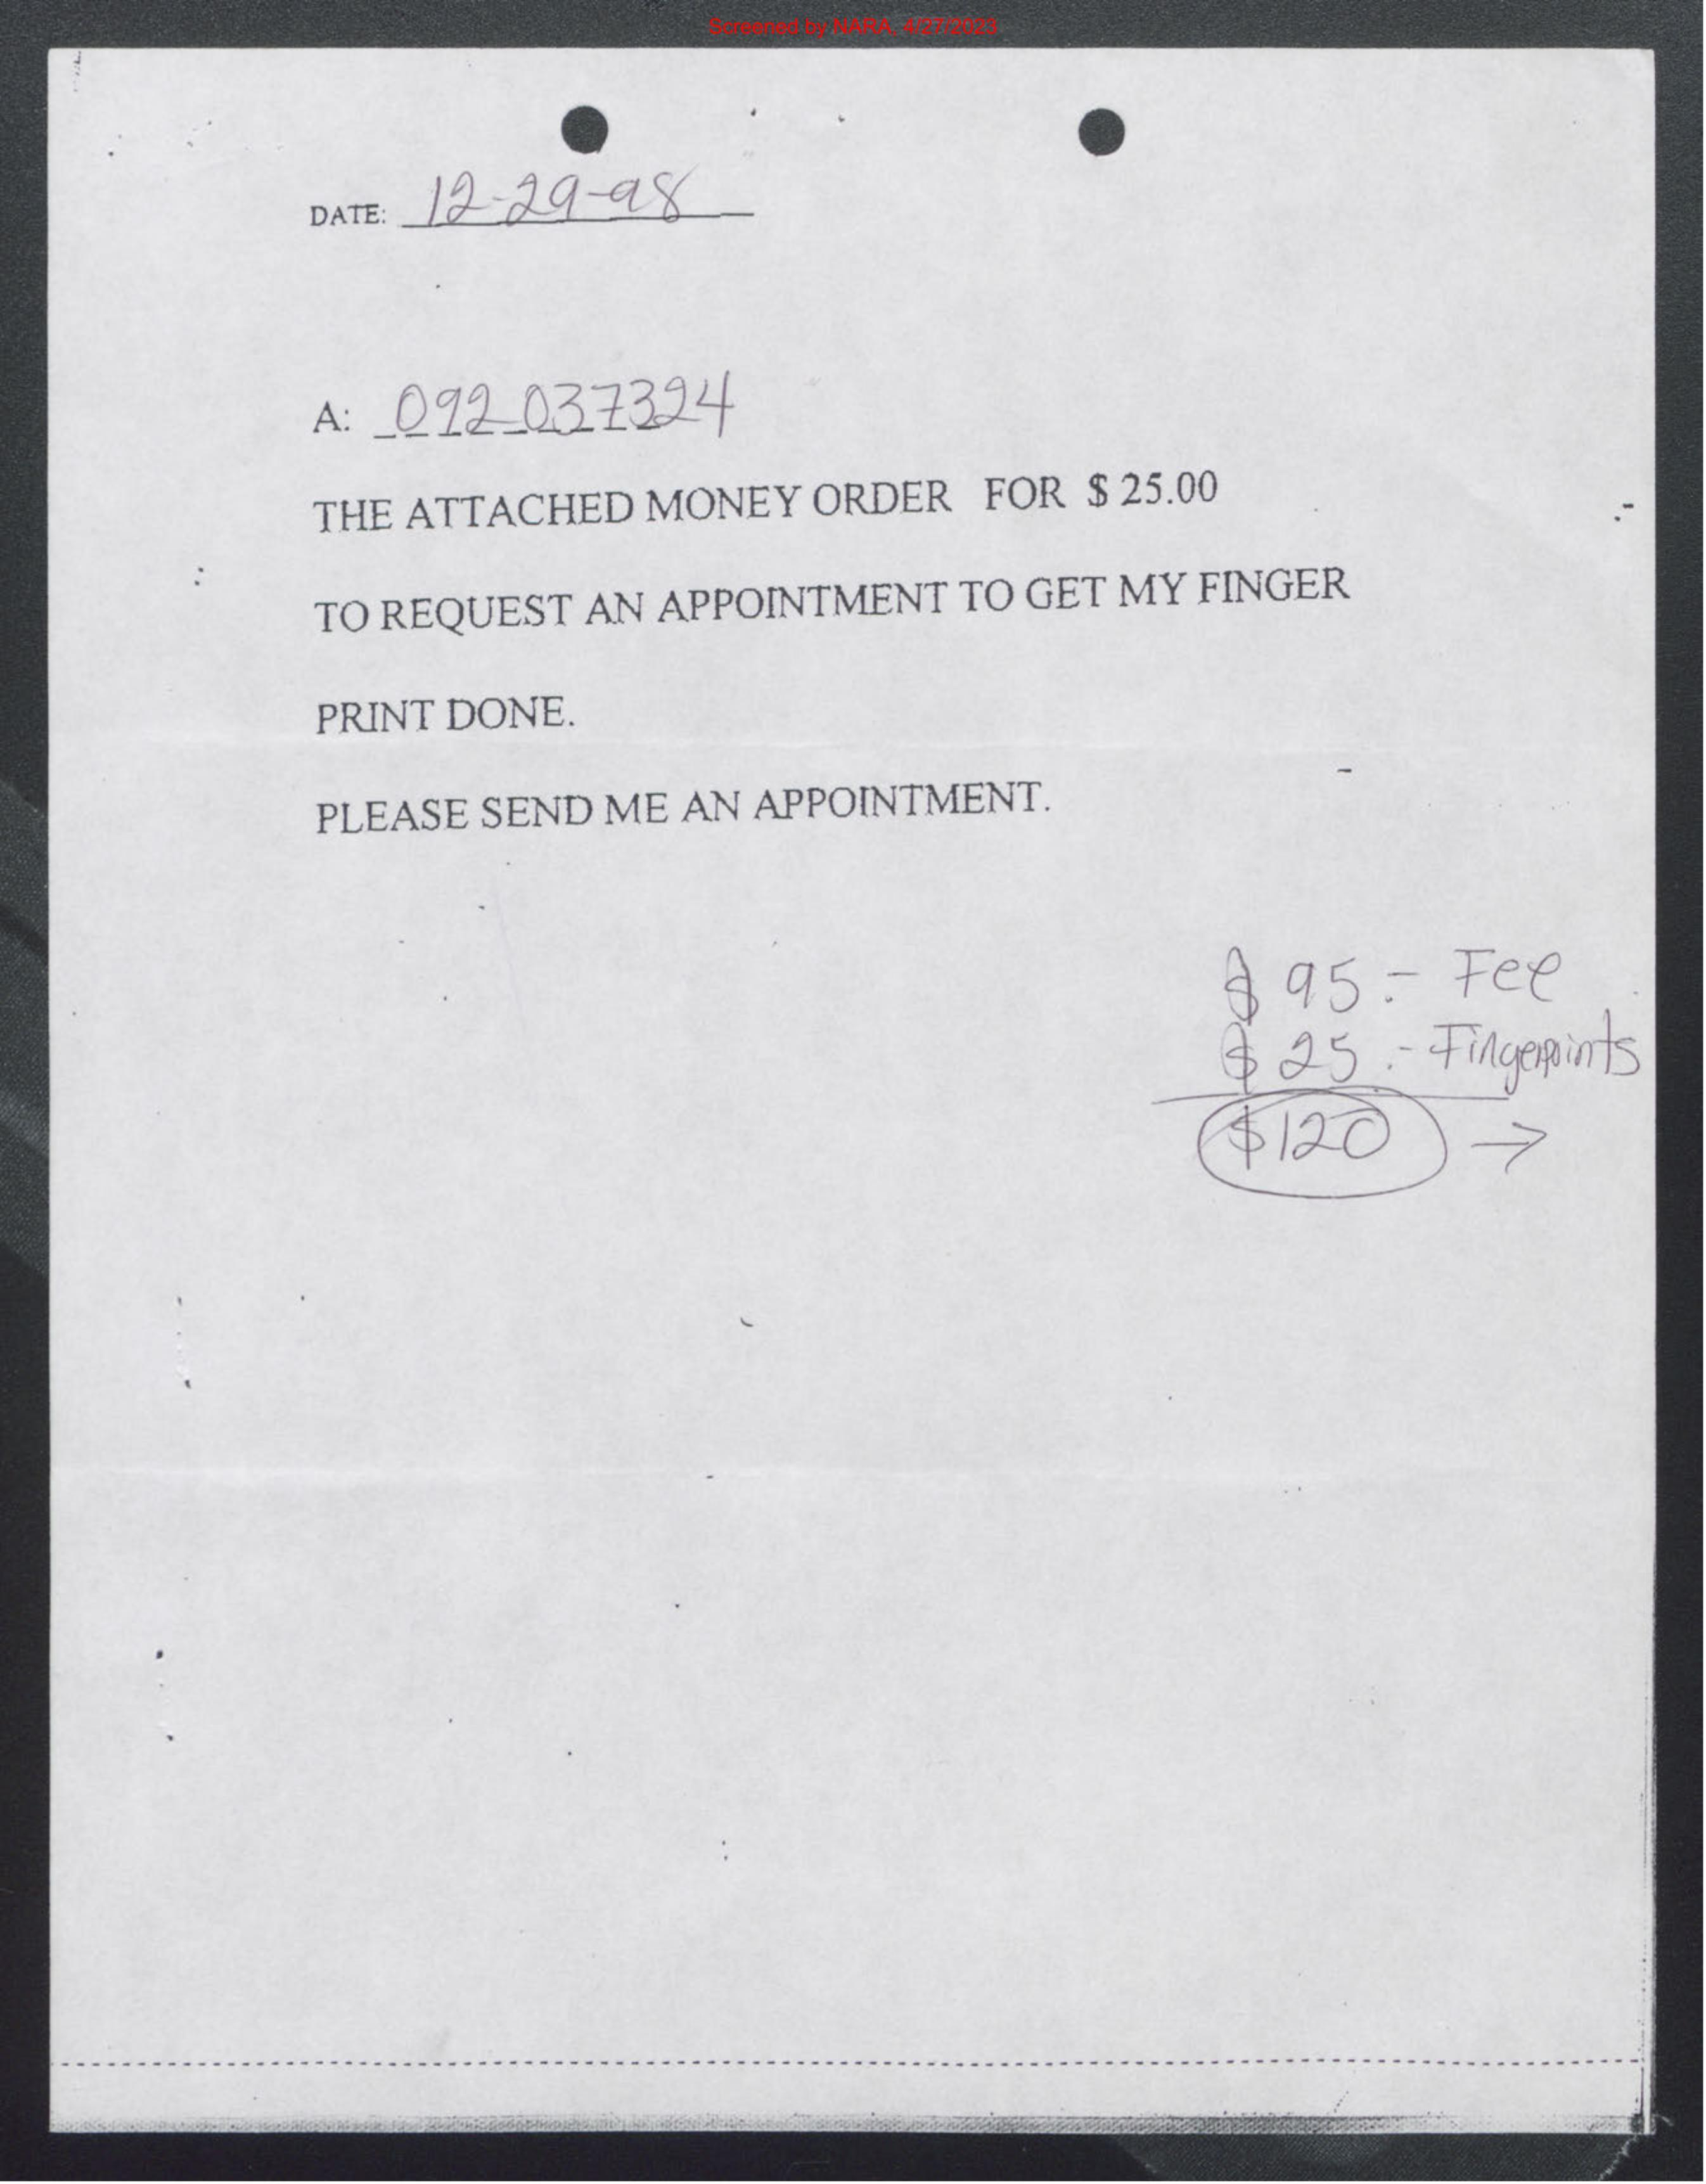 Screened by NARA, 4/27/2023
DATE: 12-29-98
A: 092 037324
THE ATTACHED MONEY ORDER FOR $ 25.00
TO REQUEST AN APPOINTMENT TO GET MY FINGER
PRINT DONE.
PLEASE SEND ME AN APPOINTMENT.
$ 95.- Fee
$ 25.- Fingerprints
$120 →